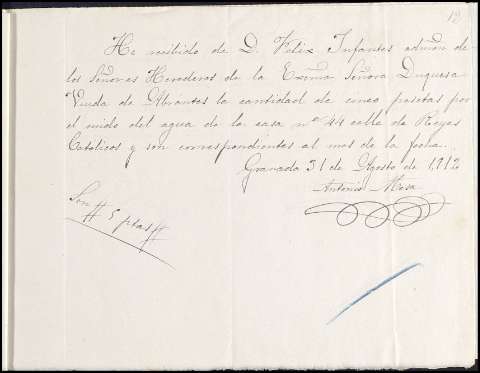 12
He recibido de D. Felix Infantes admon de
los Señores Herederos de la Excma Señora Duquesa
Viuda de Abrantes la cantidad de cinco pesetas por
el cuido del agua de la casa nº 44 calle de Reyes
Católicos y son correspondientes al mes de la fecha.
Granada 31 de Agosto de 1912
Antonio Mesa
Son # 5 ptas #